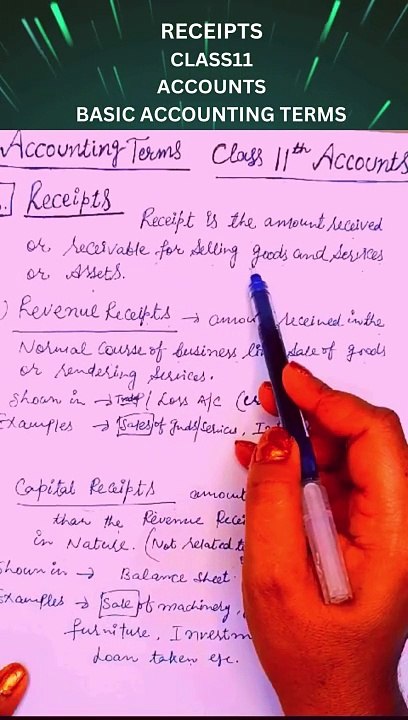 RECEIPTS
CLASS11
ACCOUNTS
BASIC ACCOUNTING TERMS
Accounting Terms Class 11th Accounts
Receipts
Receipt is the amount received
or receivable for selling goods and services
or Assets.
Revenue Receipts → received in the
Normal course of business sale of goods
or rendering services.
Shown in → / Loss A/c
Examples → Sales of goods/services,
Capital Receipts amount
than the Revenue
in Nature. (Not related
Shown in → Balance Sheet
Examples → Sale of machinery,
furniture,
Loan taken etc.